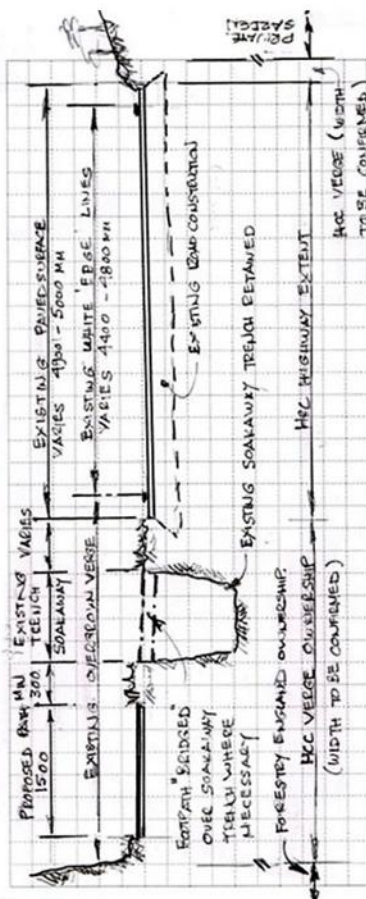 PROPOSED PATH MIN
1500
300
EXISTING
TRENCH
SOAKAWAY
VARIES
EXISTING OVERGROWN VERGE
EXISTING PAVED SURFACE
VARIES 4900 - 5000 MM
EXISTING WHITE 'EDGE' LINES
VARIES 4400 - 4800 MM
EXISTING ROAD CONSTRUCTION
EXISTING SOAKAWAY TRENCH RETAINED
FOOTPATH "BRIDGED"
OVER SOAKAWAY
TRENCH WHERE
NECESSARY
FORESTRY ENGLAND OWNERSHIP.
HCC VERGE OWNERSHIP
(WIDTH TO BE CONFIRMED)
HCC HIGHWAY EXTENT
HCC VERGE (WIDTH
TO BE CONFIRMED)
PRIVATE